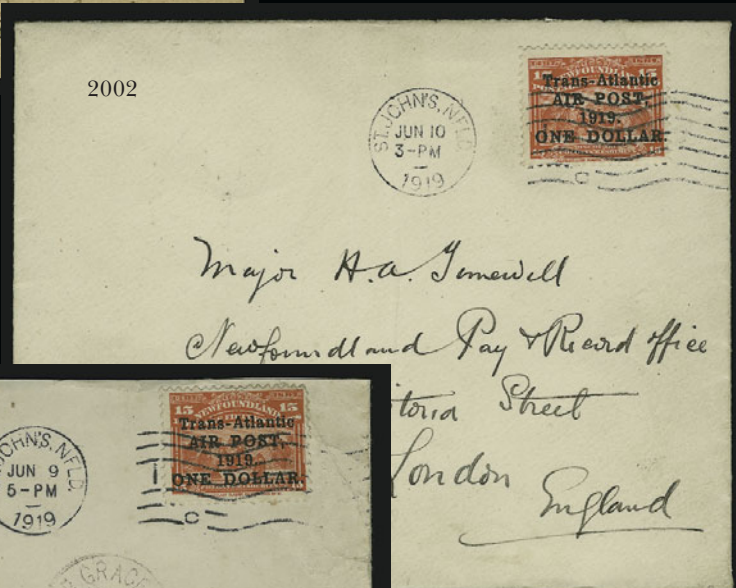 2002
ST. JOHN'S, NFLD.
JUN 10
3-PM
1919
NEWFOUNDLAND
Trans-Atlantic
AIR POST,
1919.
ONE DOLLAR.
Major H. A.
Newfoundland Pay & Record Office
toria Street
London
England
JOHN'S, NFLD.
JUN 9
5-PM
1919
15 15
NEWFOUNDLAND
Trans-Atlantic
AIR POST,
1919.
ONE DOLLAR.
GRACE